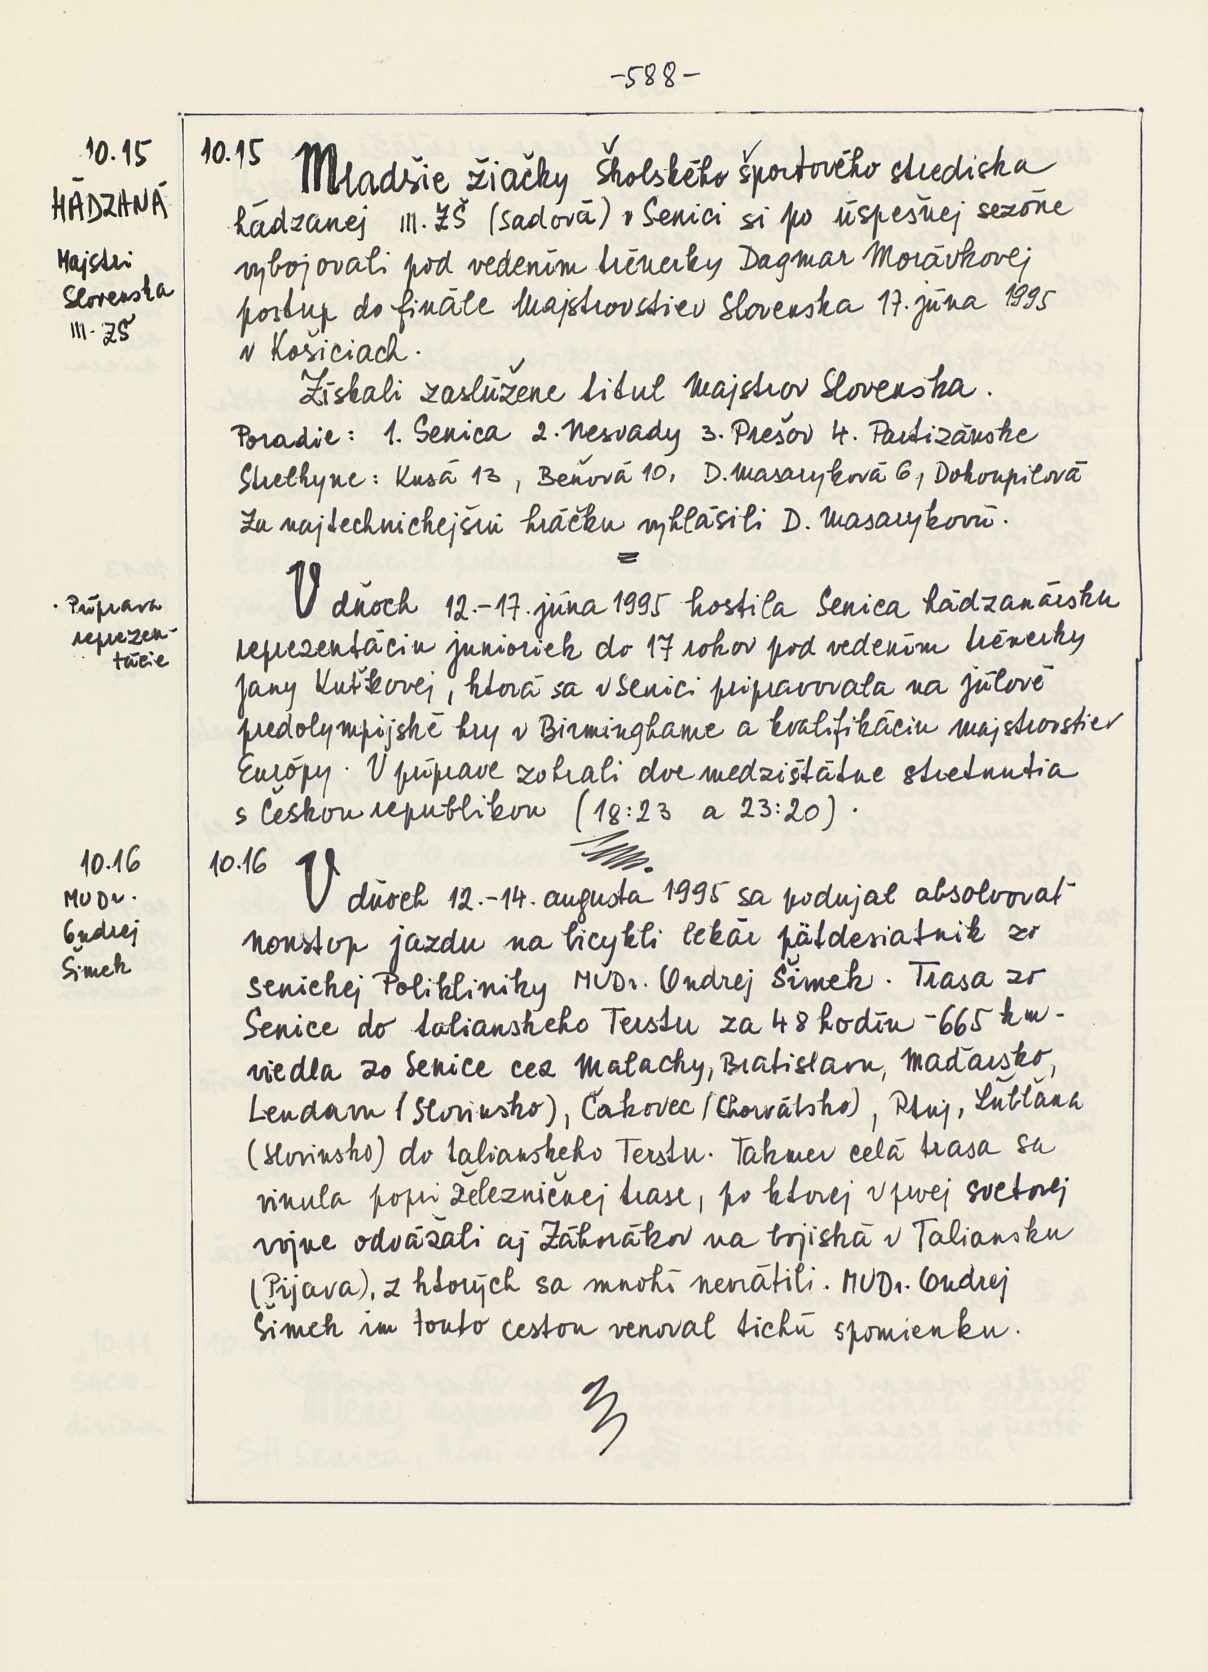 -588-
10.15
HÁDZANÁ
Majstri
Slovenska
III. ZŠ
10.15 Mladšie žiačky Školského športového strediska
hádzanej III. ZŠ (Sadová) v Senici si po úspešnej sezóne
vybojovali pod vedením trénerky Dagmar Morávkovej
postup do finále Majstrovstiev Slovenska 17. júna 1995
v Košiciach.
Získali zaslúžene titul Majstrov Slovenska.
Poradie: 1. Senica 2. Nesvady 3. Prešov 4. Partizánske
Strelkyne: Kusá 13, Beňová 10, D. Masaryková 6, Dokoupilová
Za najtechnickejšiu hráčku vyhlásili D. Masarykovú.
Príprava
reprezen-
tácie
V dňoch 12.-17. júna 1995 hostila Senica hádzanársku
reprezentáciu junioriek do 17 rokov pod vedením trénerky
Jany Kuťkovej, ktorá sa v Senici pripravovala na júlové
predolympijské hry v Birminghame a kvalifikáciu majstrovstiev
Európy. V príprave zohrali dve medzištátne stretnutia
s Českou republikou (18:23 a 23:20).
10.16
MUDr.
Ondrej
Šimek
10.16 V dňoch 12.-14. augusta 1995 sa podujal absolvovať
nonstop jazdu na bicykli lekár päťdesiatnik zo
senickej Polikliniky MUDr. Ondrej Šimek. Trasa zo
Senice do talianskeho Terstu za 48 hodín - 665 km -
viedla zo Senice cez Malacky, Bratislavu, Maďarsko,
Lendavu (Slovinsko), Čakovec (Chorvátsko), Ptuj, Ľubľana
(Slovinsko) do talianskeho Terstu. Takmer celá trasa sa
vinula popri železničnej trase, po ktorej v prvej svetovej
vojne odvážali aj Záhorákov na bojiská v Taliansku
(Pijava), z ktorých sa mnohí nevrátili. MUDr. Ondrej
Šimek im touto cestou venoval tichú spomienku.